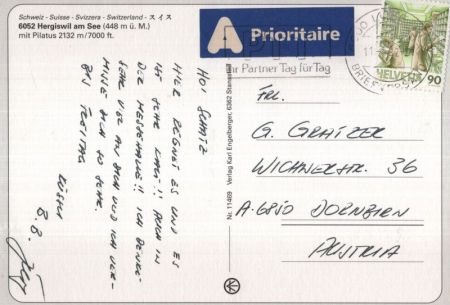 Schweiz - Suisse - Svizzera - Switzerland - スイス
6052 Hergiswil am See (448 m ü. M.)
mit Pilatus 2132 m/7000 ft.
A Prioritaire
PTT
Ihr Partner Tag für Tag
BRIEF
HELVETIA 90
HOI SCHATZ
HIER REGNET ES UND ES
IST SEHR KALT!! AUCH IN
DER MESSEHALLE!! ICH DENKE
SEHR VIEL AN DICH UND ICH VER-
MISSE DICH SO SEHR.
BIS FREITAG
KÜSSCH
B.B.
Nr. 11469 Verlag Karl Engelberger, 6362 Stansstad
FRL.
G. GRATZER
WICHNERSTR. 36
A-6850 DORNBIRN
AUSTRIA